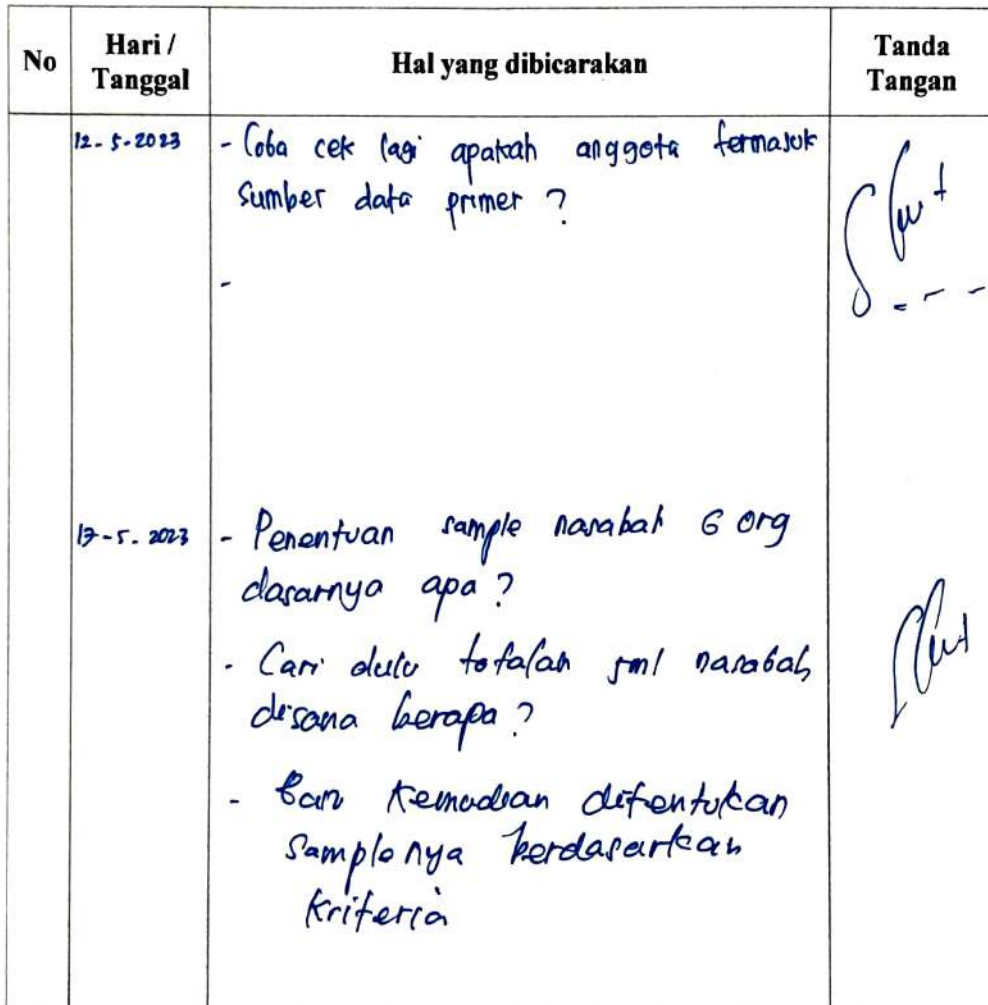 No
Hari /
Tanggal
Hal yang dibicarakan
Tanda
Tangan
12-5-2023
- Coba cek lagi apakah anggota termasuk
sumber data primer ?
-
17-5-2023
- Penentuan sample nasabah 6 org
dasarnya apa ?
- Cari dulu totalan jml nasabah
disana berapa ?
- Baru kemudian ditentukan
samplenya berdasarkan
kriteria